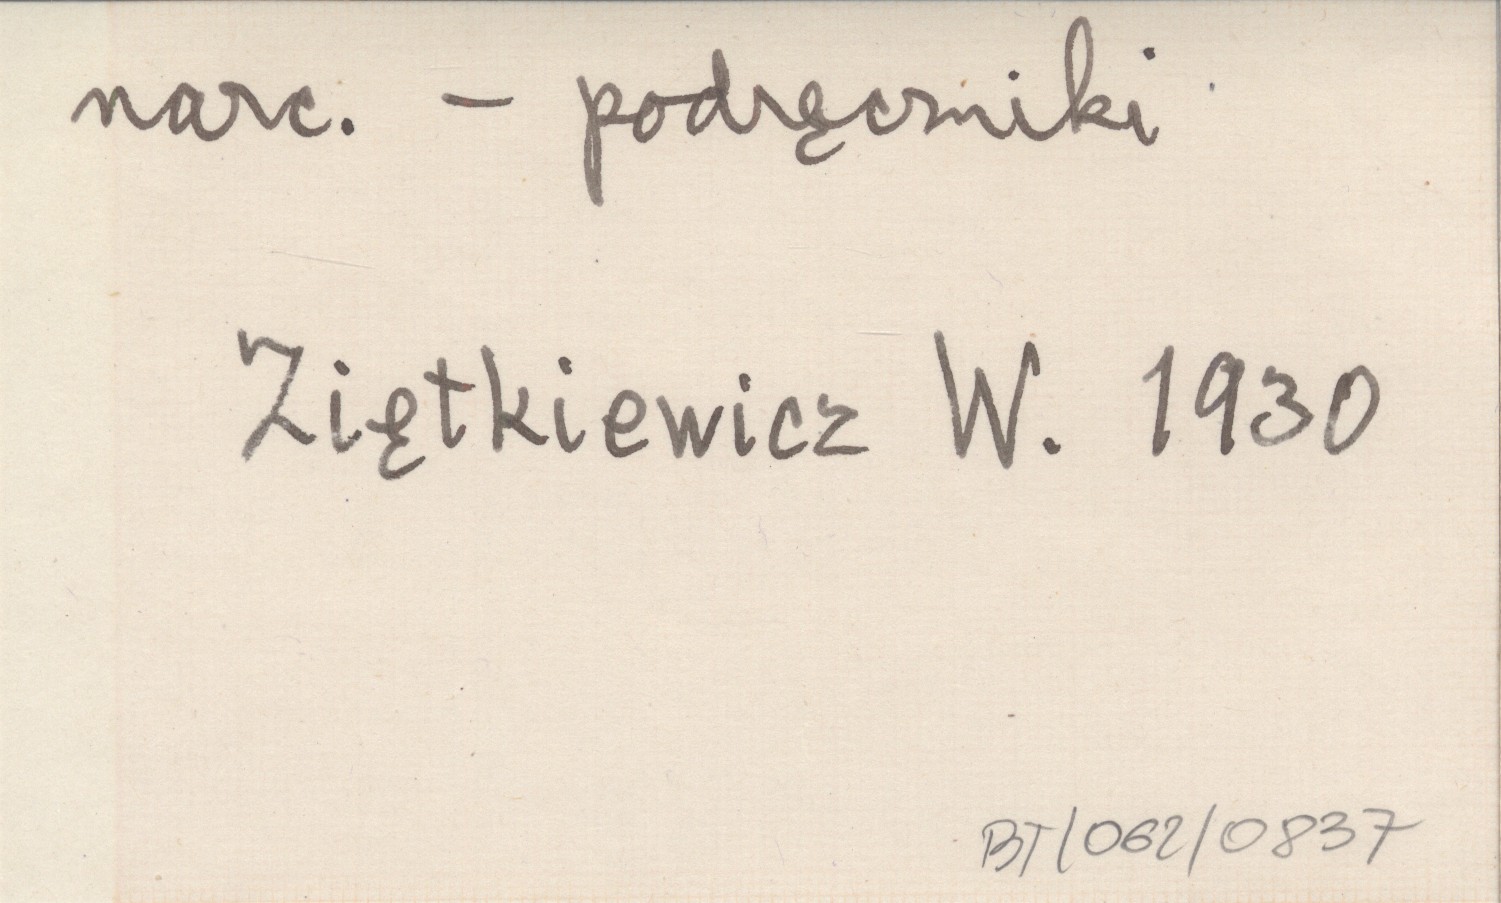 narc. - podręczniki
Ziętkiewicz W. 1930
BT/062/0837